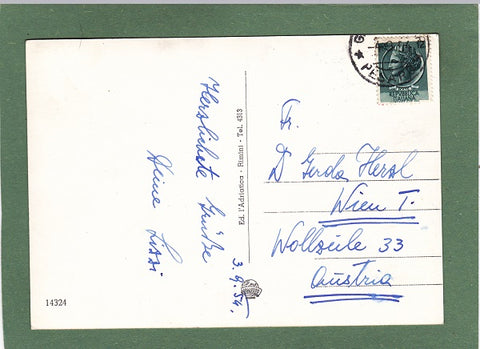 Herzlichste Grüße
Deine Lissi
3.9.54.
Ed. l'Adriatica - Rimini - Tel. 4313
14324
Fr.
D Gerda Herzl
Wien I.
Wollzeile 33
Austria